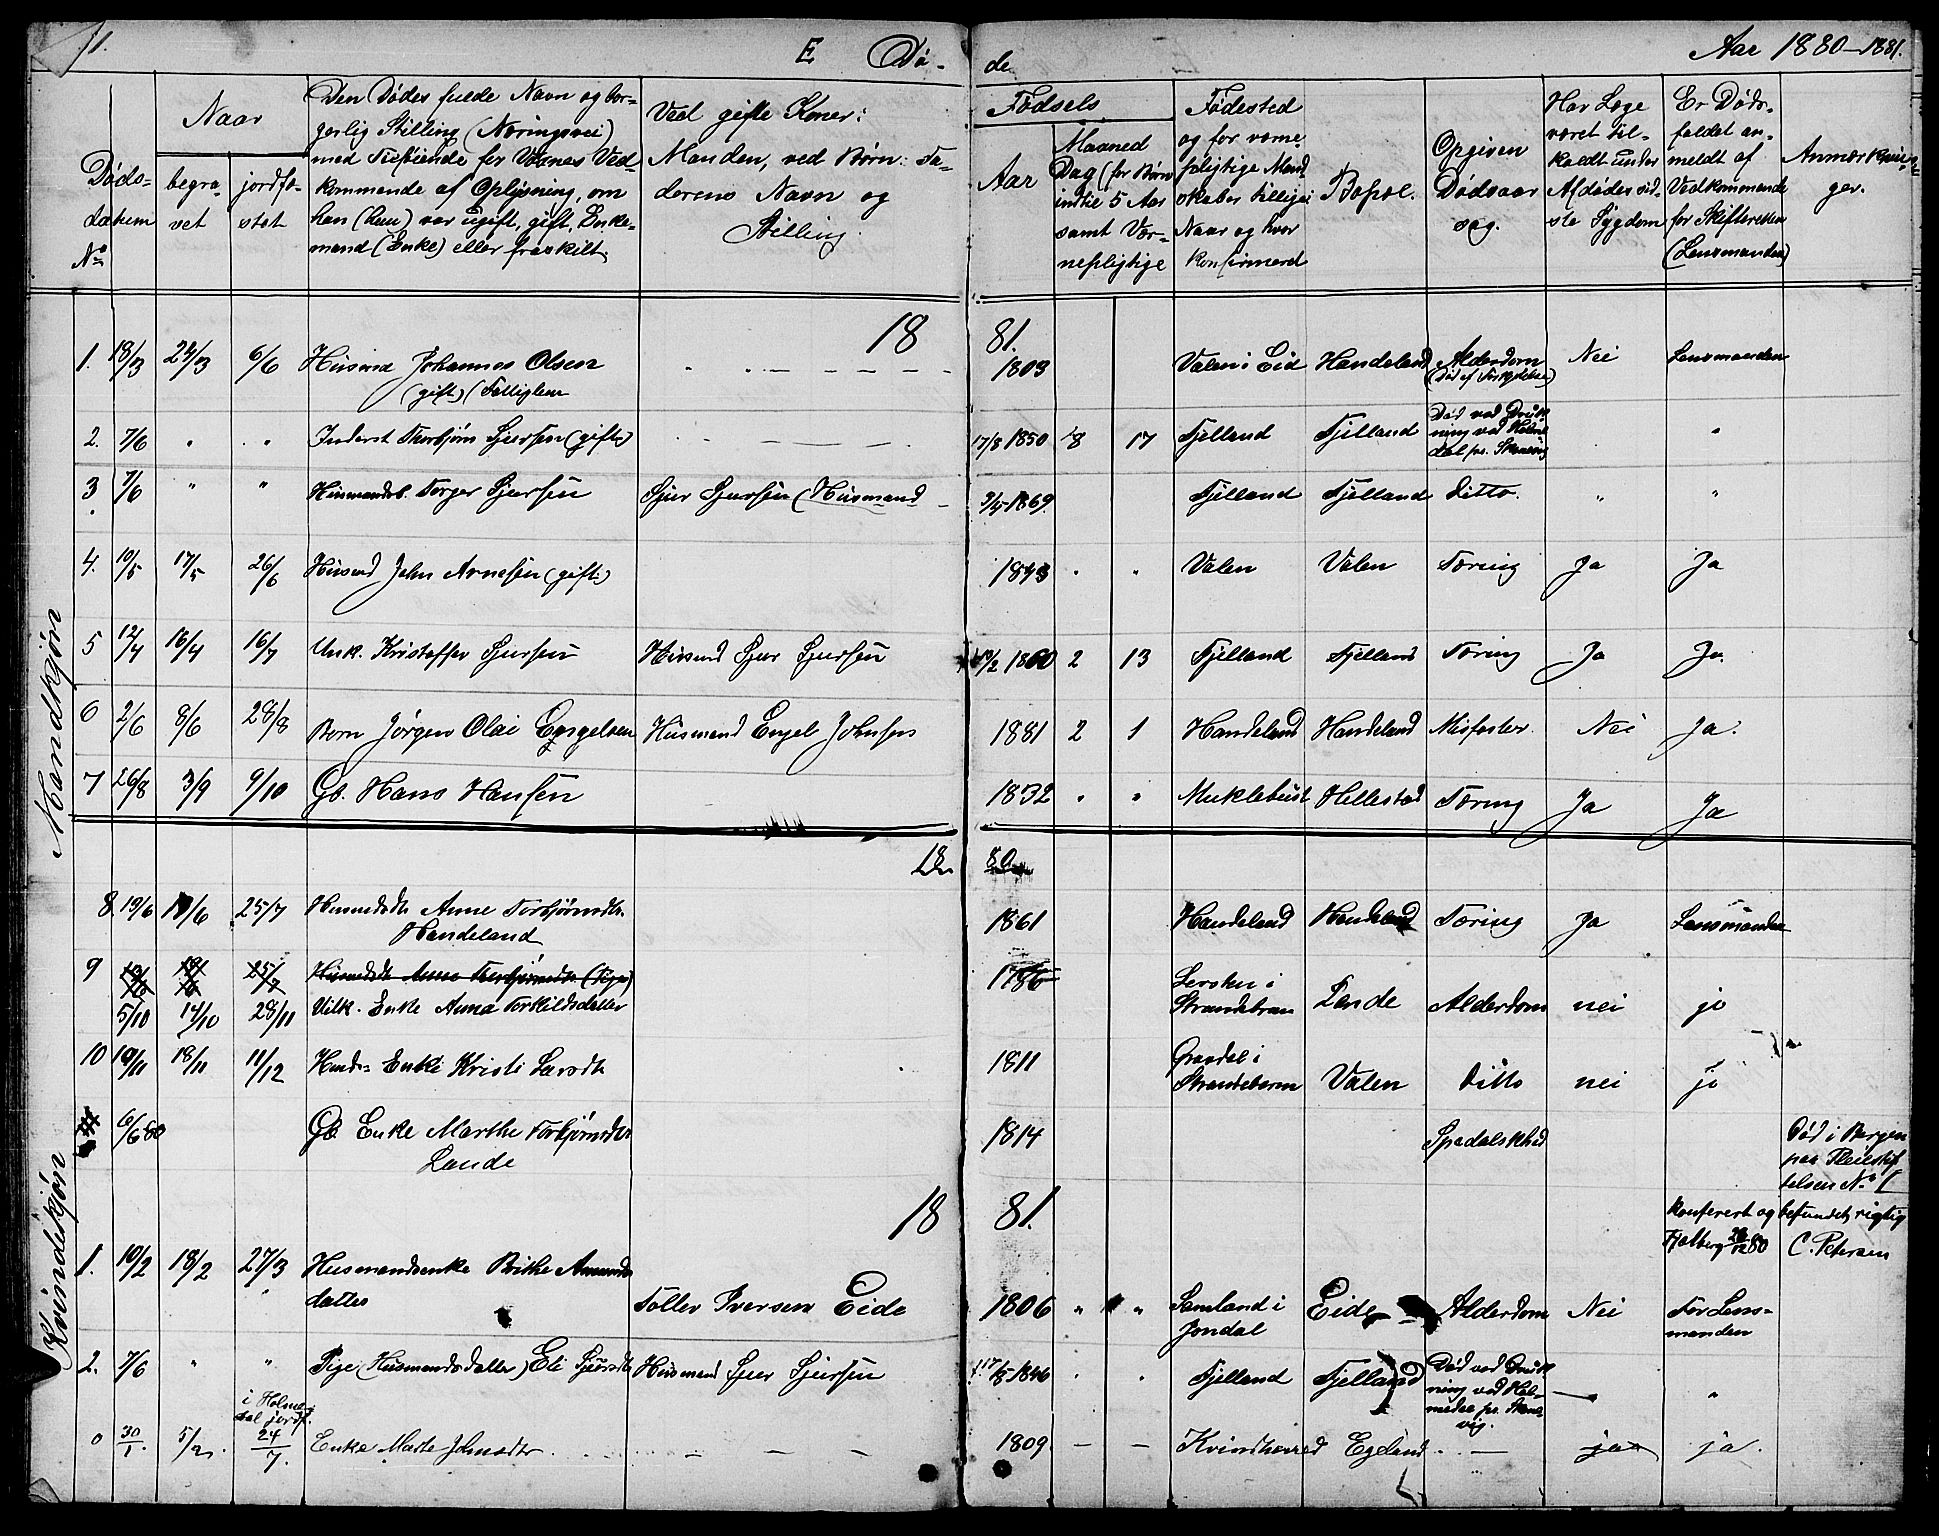 11.
E Dø- de Aar 1880-1881.
Dødsdatum No
Naar
begravet
jordfæstet
Den Dødes fulde Navn og borgerlig Stilling (Næringsvei) med Tilføiende for Voxnes Vedkommende af Oplysning, om han (hun) var ugift, gift, Enkemand (Enke) eller fraskilt.
Ved gifte Koner: Manden, ved Børn: Faderens Navn og Stilling.
Fødsels
Aar
Maaned Dag (for Børn indtil 5 Aar samt Værnepligtige
Fødested og for værnepligtige Mandskaber tilligei Naar og hvor konfirmerd
Bopæl.
Opgiven Dødsaarsag.
Har Læge været tilkaldt under Afdødes sidste Sygdom
Er Dødsfaldet anmeldt af Vedkommende for Skifteretten (Lensmanden)
Anmærkninger.
Mandkjøn
1881.
1. 18/3 24/3 6/6 Husmd Johannes Olsen 1803 Valen i Eid Handeland Alderdom Nei Lensmanden
(gift) (Fattiglem (Død af Forkjølelse)
2. 7/6 " " Inderst Thorbjørn Sjursen (gift) 17/8 1850 8 17 Fjelland Fjelland Død ved Drukning ved Holmedal pr. Skonevig "
3 7/6 " " Husmandss. Torger Sjursen Sjur Sjursen (Husmand 3/4 1869. Fjelland Fjelland Ditto. " "
4. 10/5 17/5 26/6 Husmd John Arnesen (gift) 1843 " " Valen Valen Tæring Ja Ja
5 12/4 16/4 16/7 Unk. Kristoffer Sjursen Husmd Sjur Sjursen 13/2 1860 2 13 Fjelland Fjelland Tæring Ja Ja
6 2/6 8/6 28/8 Barn Jørgen Olai Engelsen Husmand Engel Johnsen 1881 2 1 Handeland Handeland Misfoster. Nei Ja.
7 26/8 3/9 9/10 Gb. Hans Hansen 1832 " " Muklebust Hillestad Tæring Ja Ja
Kvindekjøn
1880
8. 10/6 19/6 25/7 Husmdsdtr Anne Torbjørnsdtr. 1861 Handeland Handeland Tæring Ja Lensmanden
Handeland
9 25/7 Husmdsdtr Anne Thorbjørnsdtr (Pige) 1786 Lersku i
5/10 14/10 28/11 Vilk. Enke Anna Torkildsdatter Strandebarm Lande Alderdom nei jo
10 10/11 18/11 11/12 Husm. Enke Kristi Larsdtr 1811 Graadal i
Strandebarm Valen Ditto nei jo
6/6 80 Gb. Enke Marthe Torbjørnsdtr 1814 Spedalskhed Død i Bergen
Lande paa Pleiestiftelsen No 1
Konfereret og befundet rigtig
Fjelberg 28/12 80 C. Petersen
1881.
1. 10/2 18/2 27/3 Husmandsenke Brithe Amunds
datter Tollev Iversen Eide 1806 " " Samland i Jondal Eide Alderdom Nei For Lensmanden
2. 7/6 " " Pige (Husmandsdatter) Eli Sjursdtr Husmand Sjur Sjursen 17/5 1846 Fjelland Fjelland Død ved Drukning ved Holmedal pr. Skonevig. "
i Holmedal jordf.
30/1. 5/2. 24/7. Enke Marte Johnsdtr 1809 - - Kvindherred Egeland - ja ja.